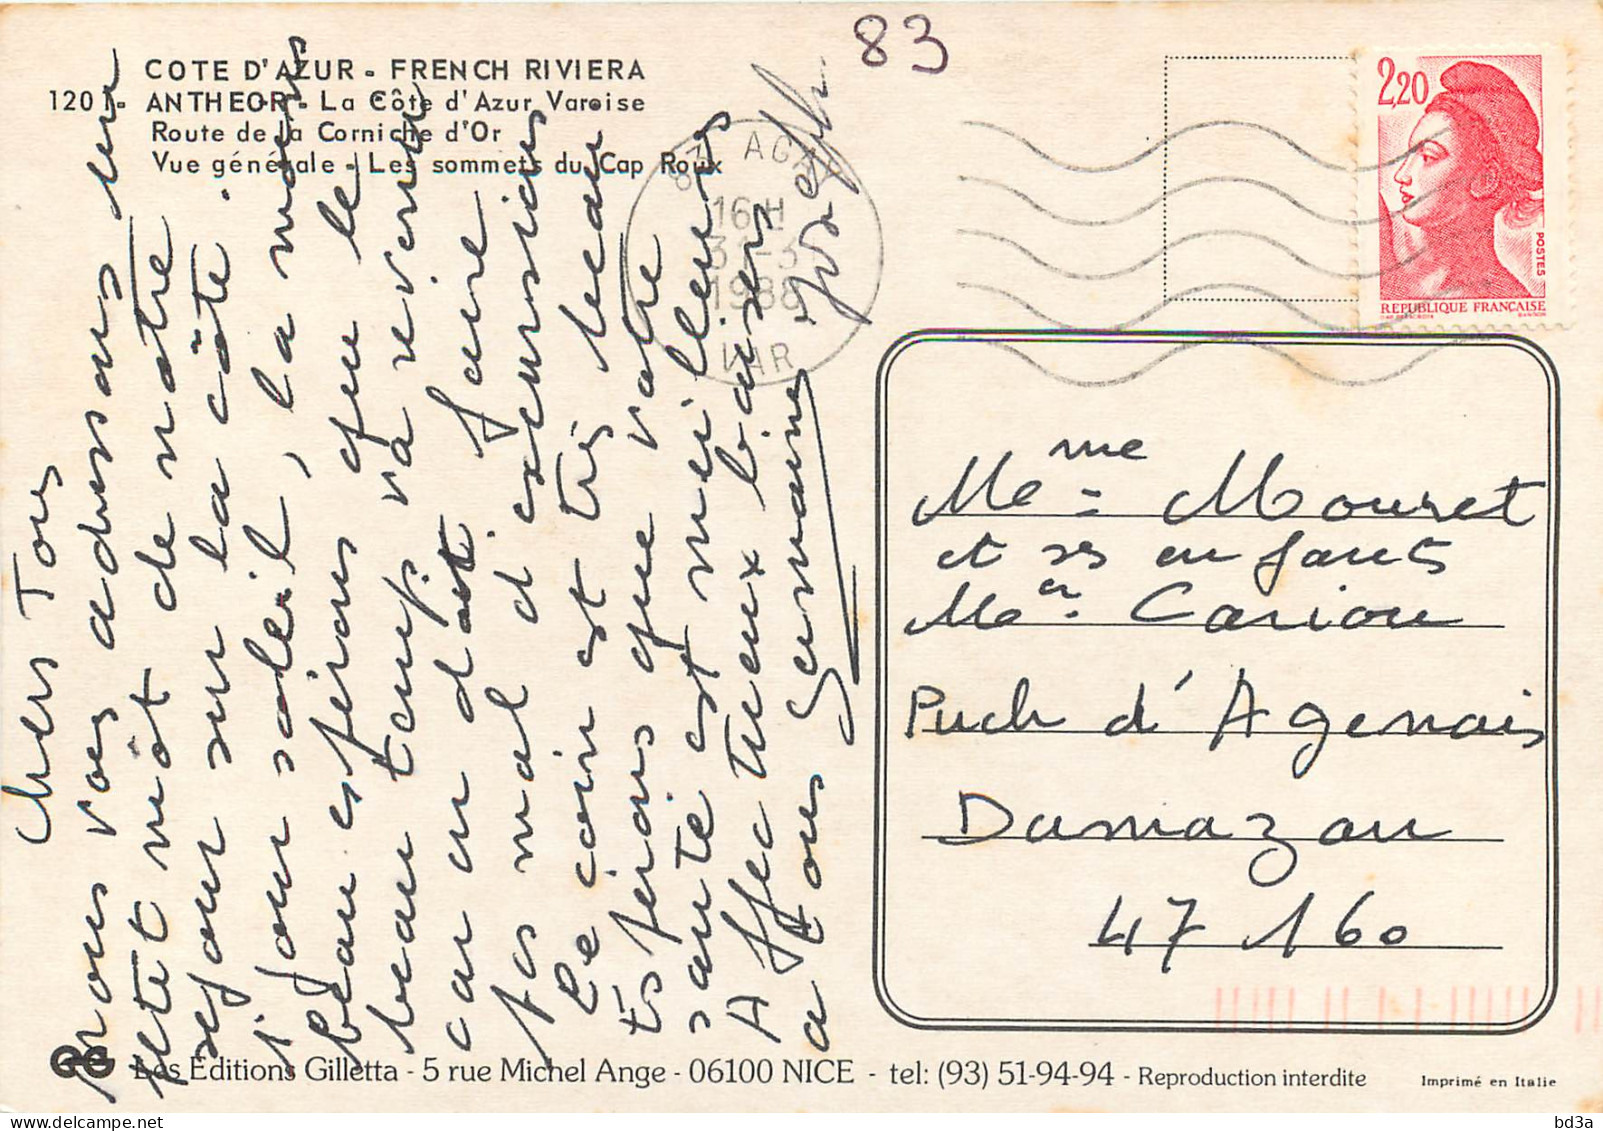 83
COTE D'AZUR - FRENCH RIVIERA
120 - ANTHEOR - La Côte d'Azur Varoise
Route de la Corniche d'Or
Vue générale - Les sommets du Cap Roux
83 AGAY
16 H
31-3
1988
VAR
2,20
POSTES
REPUBLIQUE FRANÇAISE
Chers Tous
Nous vous adressons un
petit môt de nôtre
sejour sur la côte.
1 jour soleil, la moins
beau espérons que le
beau temps va revenir
car on doit faire
pas mal d'excursions
le coin est très beau
Espérons que votre
santé est meilleures
Affectueux baisers
a tous Germaine, Joseph
Mme Mouret
et ses enfants
Me Cariou
Puch d'Agenais
Damazan
47160
Les Éditions Gilletta - 5 rue Michel Ange - 06100 NICE - tel: (93) 51-94-94 - Reproduction interdite
Imprimé en Italie
bd3a